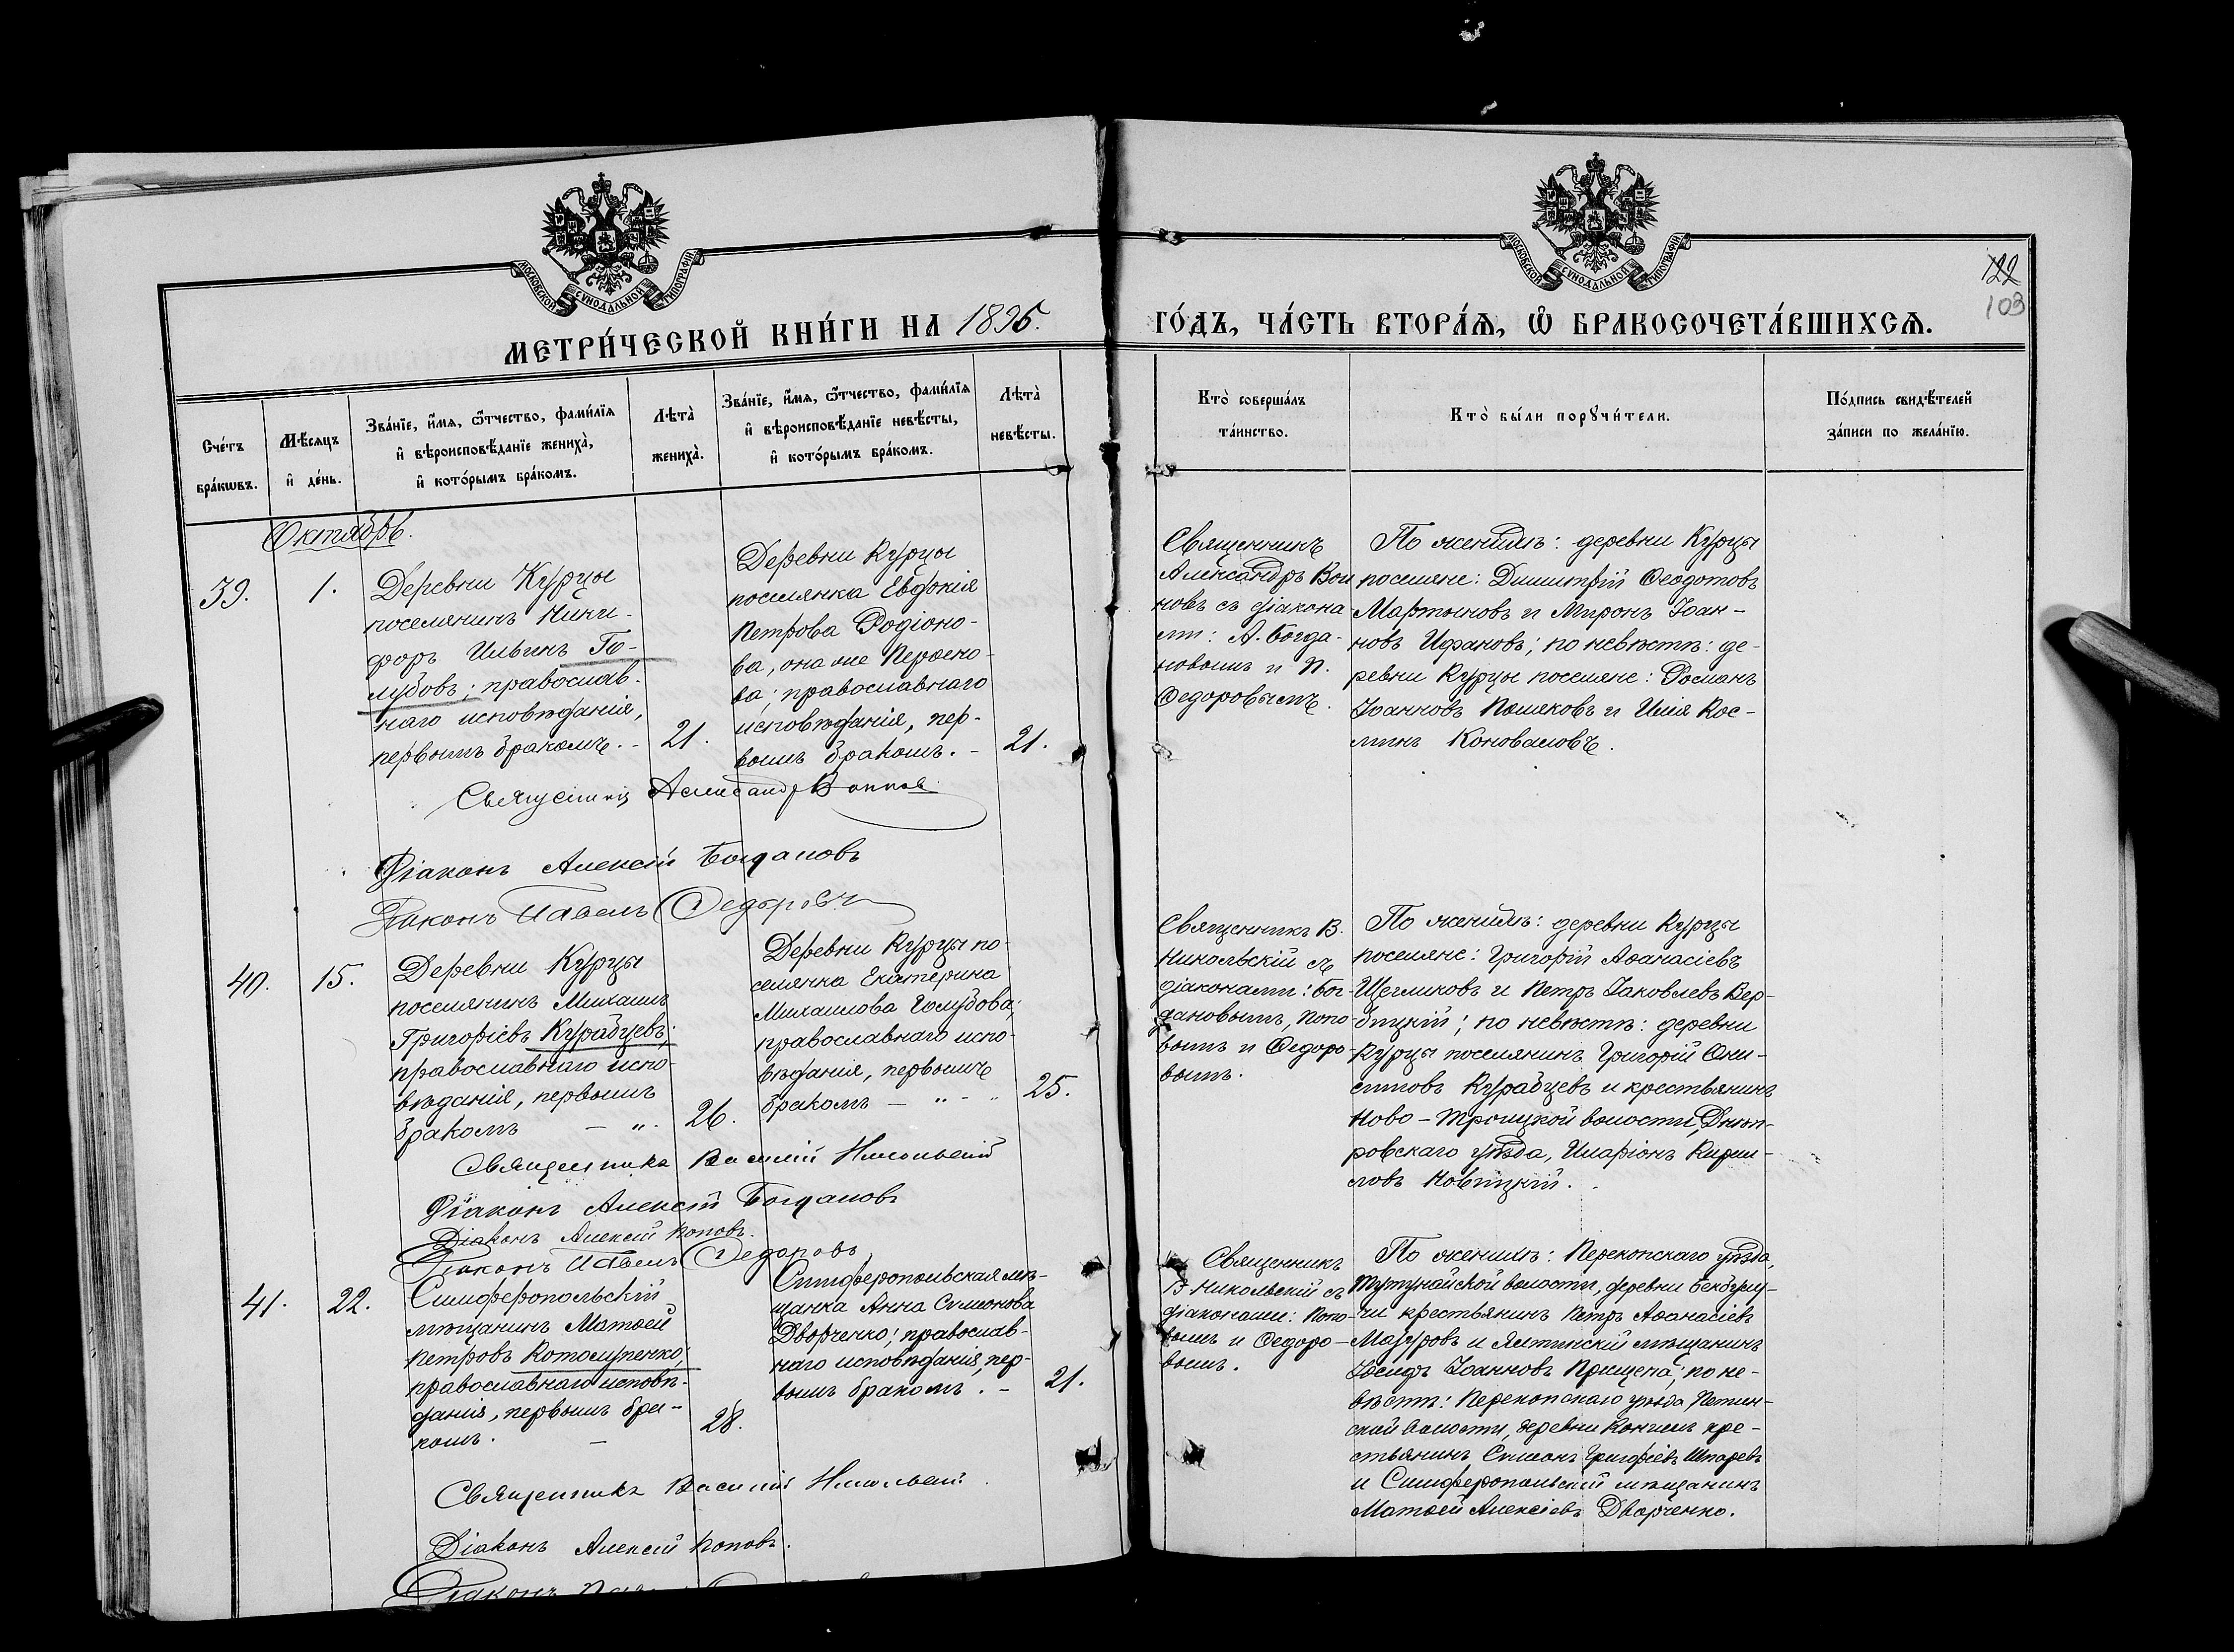 МОСКОВСКОЙ СѴНОДАЛЬНОЙ ТИПОГРАФІИ
МОСКОВСКОЙ СѴНОДАЛЬНОЙ ТИПОГРАФІИ
122
103
МЕТРИ́ЧЕСКОЙ КНИ́ГИ НА 1895.
ГО́ДЪ, ЧА́СТЬ ВТОРА́Ѧ, Ѡ҆ БРАКОСОЧЕТА́ВШИХСѦ.
Сче́тъ бра́кѡвъ.
Мѣ́сяцъ и҆ де́нь.
Зва́нїе, и҆́мѧ, ѻ҆́тчество, фами́лїѧ
и҆ вѣроисповѣ́данїе жениха̀,
и҆ кото́рымъ бра́комъ.
Лѣта̀ жениха̀.
Зва́нїе, и҆́мѧ, ѻ҆́тчество, фами́лїѧ
и҆ вѣроисповѣ́данїе невѣ́сты,
и҆ кото́рымъ бра́комъ.
Лѣта̀ невѣ́сты.
Кто̀ соверша́лъ
та́инство.
Кто̀ бы́ли порꙋчи́тели.
По́дпись свидѣ́телей
за́писи по жела́нїю.
Октябрь.
39.
1.
Деревни Курцы
поселянинъ Ники-
форъ Ильинъ Го-
лубовъ; православ-
наго исповѣданія,
первымъ бракомъ. -
21.
Деревни Курцы
поселянка Евдокія
Петрова Родіоно-
ва, она же
ва; православнаго
исповѣданія, пер-
вымъ бракомъ. -
21.
Священникъ
Александръ Вои
новъ съ діакона
ми: А. Богда-
новымъ и П.
Ѳедоровымъ.
По женихѣ: деревни Курцы
поселяне: Димитрій Ѳеодотовъ
Мартыновъ и Миронъ Іоан-
новъ Ифановъ; по невѣстѣ: де-
ревни Курцы поселяне: Романъ
Іоанновъ Поляковъ и Илія Кос-
минъ Коноваловъ.
Священникъ Александръ Воиновъ
Діаконъ Алексій Богдановъ
Діаконъ Павелъ Ѳедоровъ
40.
15.
Деревни Курцы
поселянинъ Михаилъ
Григоріевъ Курабцевъ;
православнаго испо-
вѣданія, первымъ
бракомъ — „.
26.
Деревни Курцы по-
селянка Екатерина
Михаилова Голубова;
православнаго испо-
вѣданія, первымъ
бракомъ — „ - „
25.
Священникъ В.
Никольскій съ
діаконами: Бог-
дановымъ, Попо-
вымъ и Ѳедоро-
вымъ.
По женихѣ: деревни Курцы
поселяне: Григорій Аѳанасіевъ
Щегликовъ и Петръ Іаковлевъ Вер-
бицкій; по невѣстѣ: деревни
Курцы поселянинъ Григорій Они-
симовъ Курабцевъ и крестьянинъ
Ново-Троицкой волости, Днѣп-
ровскаго уѣзда, Иларіонъ Кирил-
ловъ Новицкій.
Священникъ Василій Никольскій
Діаконъ Алексій Богдановъ
Діаконъ Алексій Поповъ.
Діаконъ Павелъ Ѳедоровъ
41.
22.
Симферопольскій
мѣщанинъ Матѳей
Петровъ Котолупенко;
православнаго исповѣ-
данія, первымъ бра-
комъ. —
28.
Симферопольская мѣ-
щанка Анна Симонова
Дворченко; православ-
наго исповѣданія, пер-
вымъ бракомъ. -
21.
Священникъ
В. Никольскій съ
діаконами: Попо-
вымъ и Ѳедоро-
вымъ.
По женихѣ: Перекопскаго уѣзда,
волости, деревни
крестьянинъ Петръ Аѳанасіевъ
Мазуровъ и Ялтинскій мѣщанинъ
Іосифъ Іоанновъ Прищепа; по не-
вѣстѣ: Перекопскаго уѣзда
волости, деревни кре-
стьянинъ Симонъ Григоріевъ
и Симферопольскій мѣщанинъ
Матѳей Алексіевъ Дворченко.
Священникъ Василій Никольскій
Діаконъ Алексій Поповъ.
Діаконъ